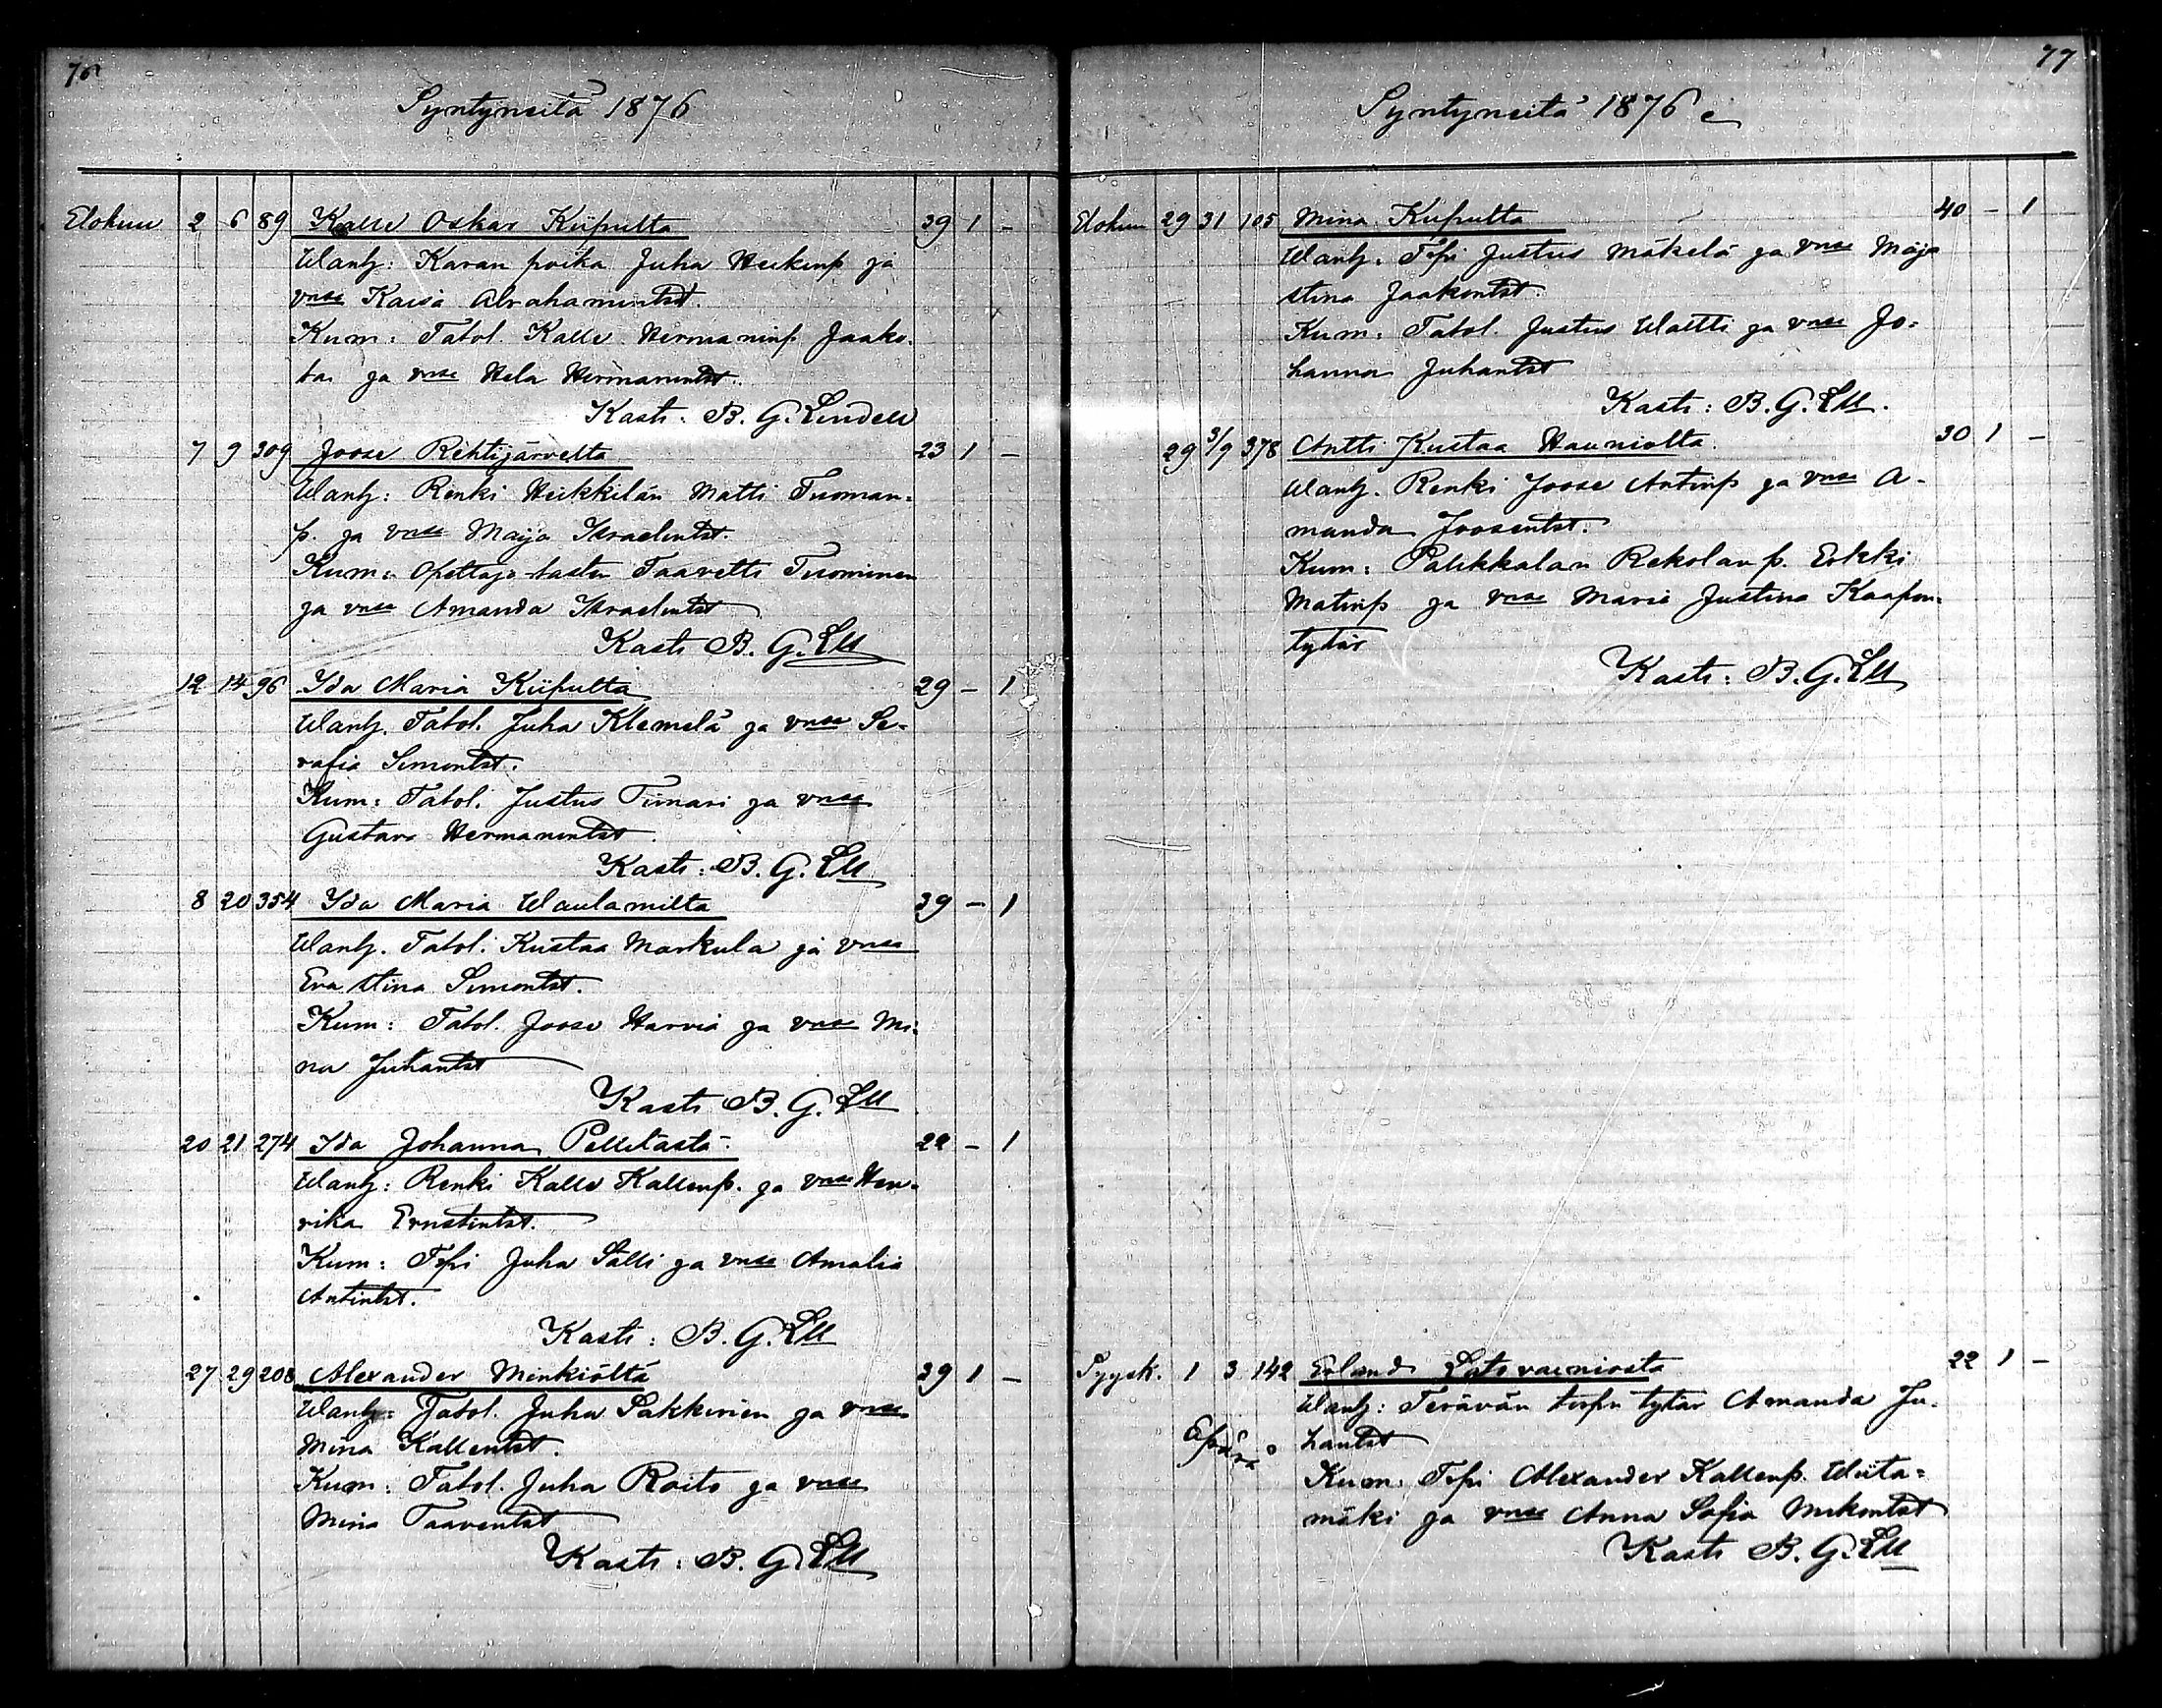 76
Syntyneitä 1876
Elokuu 2 6 89 Kalle Oskar Kiipulta 39 1 -
Wanh: Karan poika Juha Heikinp. ja
vmsa Kaisa Abrahamintst.
Kum: Tatol. Kalle Hermaninp. Jaako-
la ja vmsa Hela Hermanintst.
Kasti: B. G. Lindell
7 9 309 Joose Rehtijärvelta 23 1 -
Wanh: Renki Heikkilän Matti Tuoman-
p. ja vmsa Maija Israelintst.
Kum: Opettaja-lasten Taavetti Tuominen
ja vmsa Amanda Israelintst
Kasti B. G. Lll
12 14 96 Ida Maria Kiipulta 29 - 1
Wanh. Tatol. Juha Klemelä ja vmsa Se-
rafia Simontst.
Kum: Tatol. Justus Timari ja vmsa
Gustava Hermanintst.
Kasti: B. G. Lll
8 20 354 Ida Maria Waulamilta 39 - 1
Wanh. Tatol. Kustaa Markula ja vmsa
Eva Stina Simontst.
Kum: Tatol. Joose Harvia ja vmsa Mi-
na Juhantst
Kasti B. G. Lll
20 21 274 Ida Johanna Pellilästä 22 - 1
Wanh: Renki Kalle Kallenp. ja vmsa Hen-
rika Ernstintst.
Kum: Torpi Juha Sälli ja vmsa Amalia
Antintst.
Kasti: B. G. Lll
27 29 208 Alexander Minkiöltä 39 1 -
Wanh: Tatol. Juha Sakkinen ja vmsa
Mina Kallentst.
Kum: Tatol. Juha Raito ja vmsa
Mina Taaventst
Kasti: B. G. Lll
77
Syntyneitä 1876
Elokuu 29 31 105 Mina Kiipulta 40 - 1
Wanh: Torpi Justus Mäkelä ja vmsa Maja
Stina Jaakontst.
Kum: Tatol. Justus Waltti ja vmsa Jo-
hanna Juhantst
Kasti: B. G. Lll.
29 3/9 378 Antti Kustaa Hauniolta 30 1 -
Wanh. Renki Joose Antinp ja vmsa A-
manda Joosentst.
Kum: Palikkalan Rekolan p. Erkki
Matinp ja vmsa Maria Justina Kaapon-
tytär
Kasti: B. G. Lll
Syysk. 1 3 142 Erland Latovainiosta 22 1 -
Wanh: Terävän torpn tytär Amanda Ju-
Äpärä hantst
Kum: Torpi Alexander Kallenp. Wiita-
mäki ja vmsa Anna Sofia Mikontst
Kasti B. G. Lll